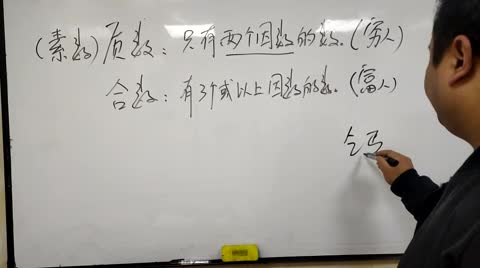 (素数)质数:只有两个因数的数.(穷人)
合数:有3个或以上因数的数.(富人)
乞丐